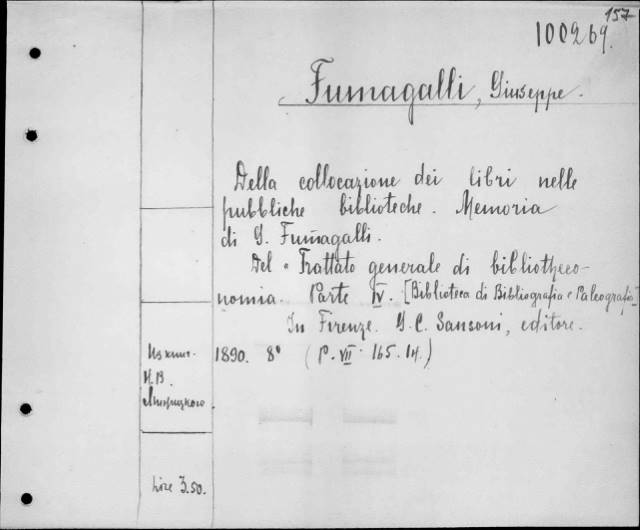 157
100269.
Fumagalli, Giuseppe.
Della collocazione dei libri nelle
pubbliche biblioteche. Memoria
di G. Fumagalli.
Del « Trattato generale di bibliotheco-
nomia. Parte IV. [Biblioteca di Bibliografia e Paleografia]
In Firenze. G. C. Sansoni, editore.
1890. 8° (P. VII. 165. IV.)
Из книг.
Н. В.
lire 3.50.